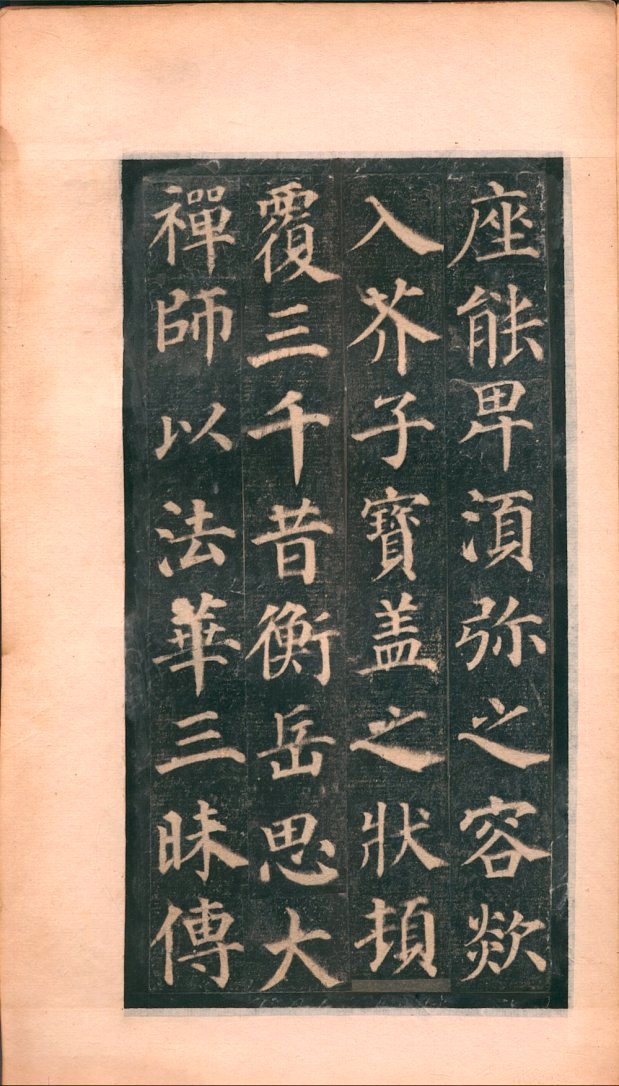 座能卑湏弥之容欻
入芥子寶盖之狀頓
覆三千昔衡岳思大
禪師以法華三昧傳